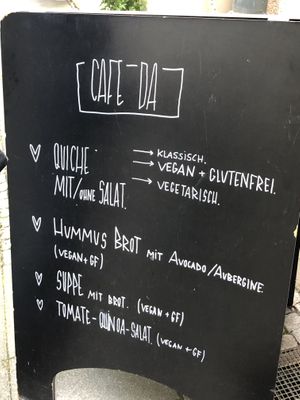 CAFE DA
♡ QUICHE → KLASSISCH.
→ VEGAN + GLUTENFREI.
MIT/OHNE SALAT. → VEGETARISCH.
♡ HUMMUS BROT MIT AVOCADO/AUBERGINE.
(VEGAN+GF)
♡ SUPPE MIT BROT. (VEGAN+GF)
♡ TOMATE-QUINOA-SALAT. (VEGAN+GF)